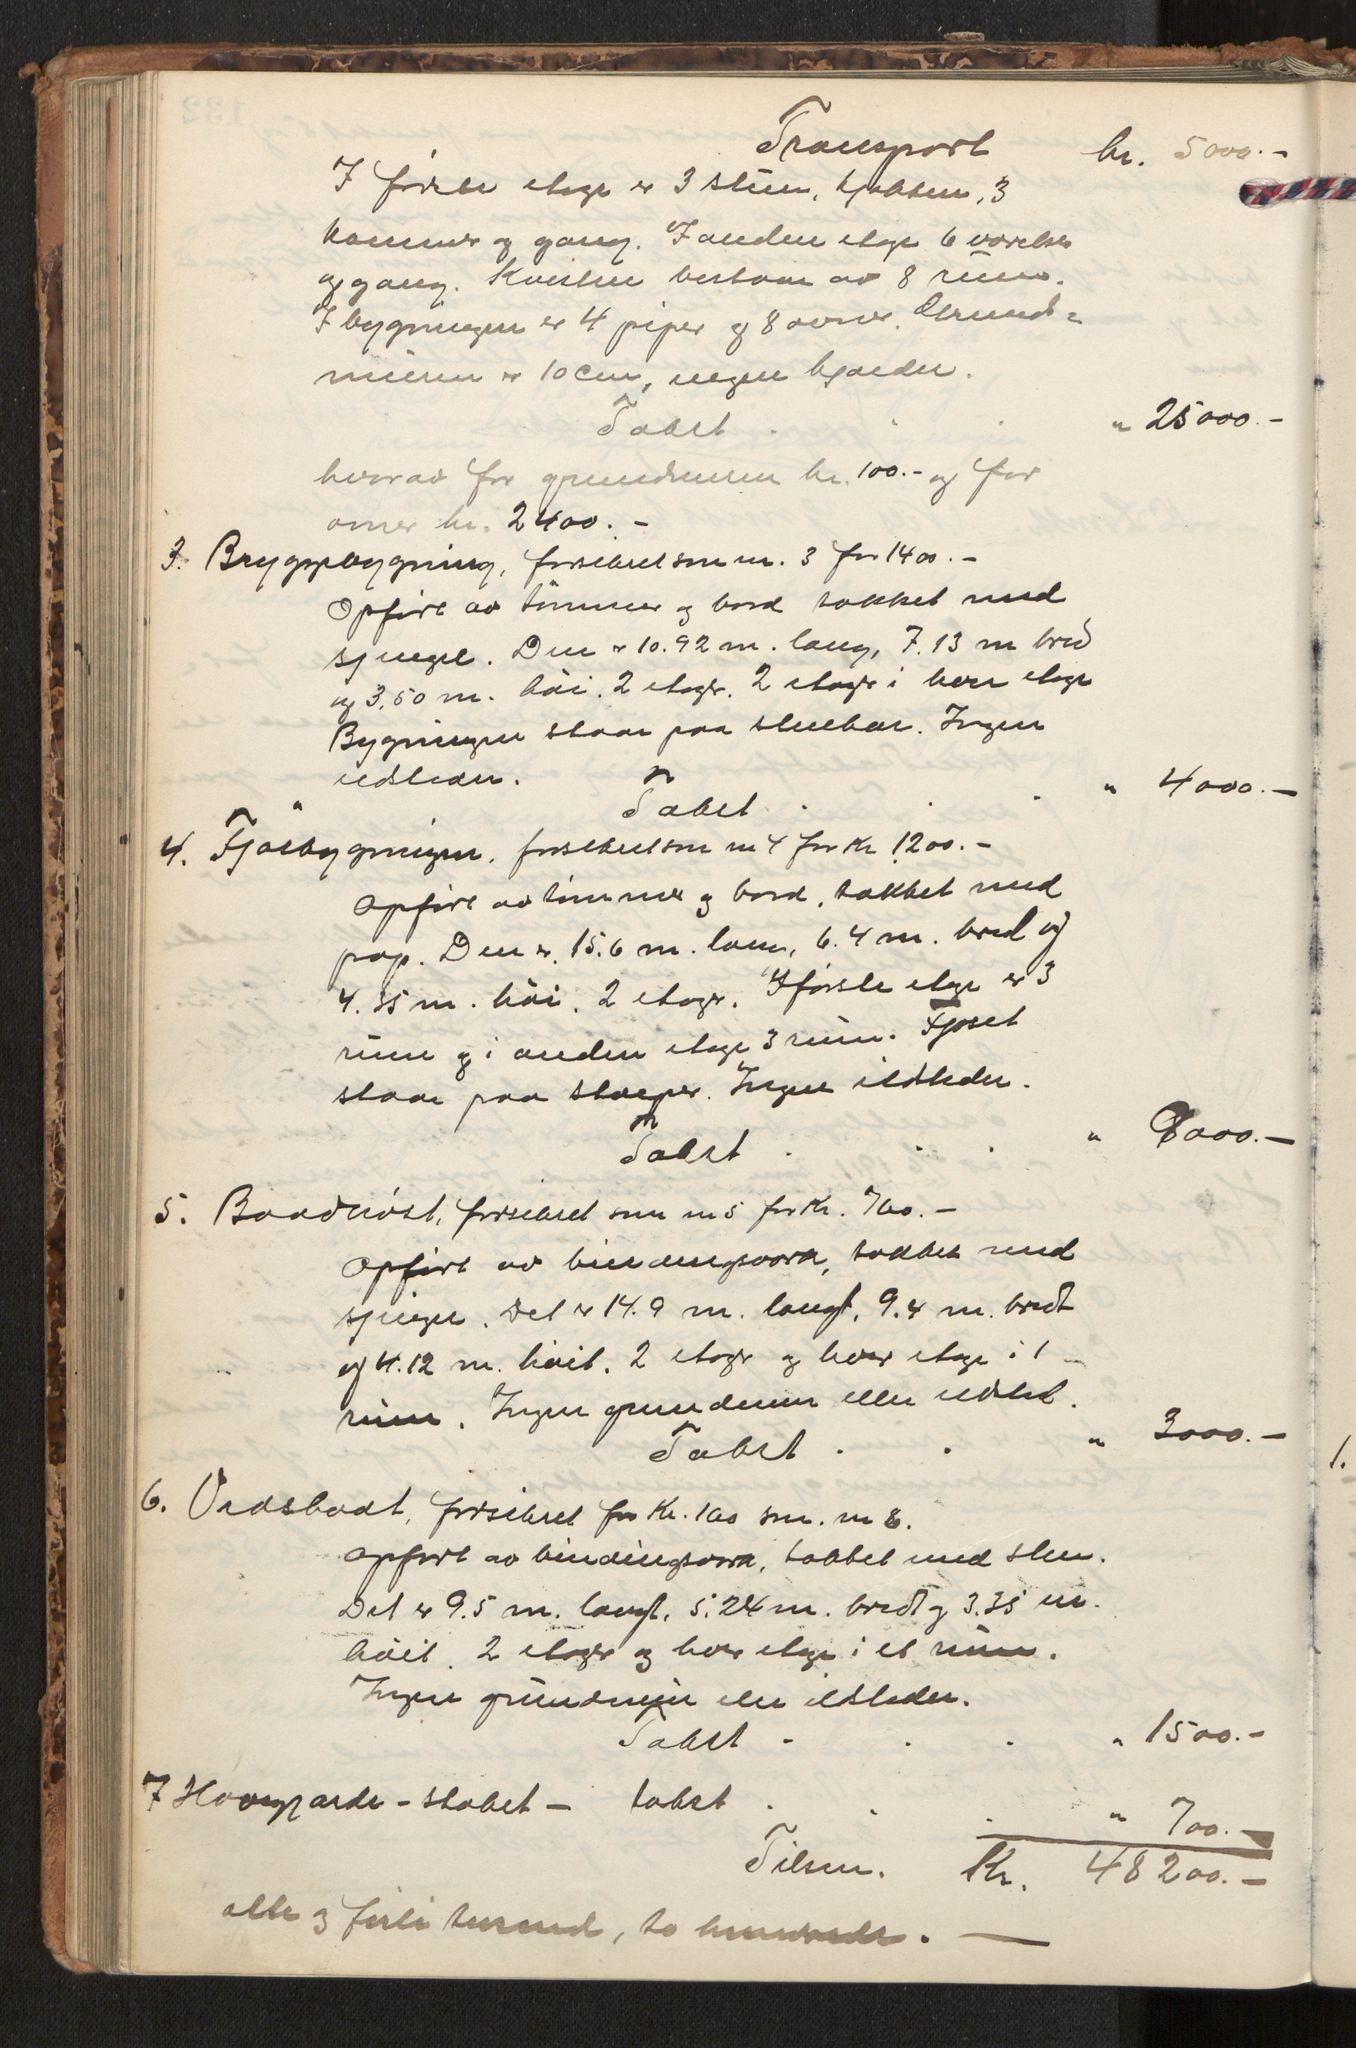 Transport kr. 5000.-
I første etage er 3 stuer, kjøkken, 3
kammer og gang. I anden etage 6 værelser
og gang. Kvisten bestaar av 8 rum.
I bygningen er 4 piper og 8 ovner. Grund-
muren er 10 cm, ingen kjælder.
Takst . . . " 25000.-
hvorav for grundmuren kr. 100.- og for
ovner kr. 2400.-
3. Bryggebygning, forsikret som nr. 3 for 1400.-
Opført av tømmer og bord tækket med
spingel. Den er 10.92 m. lang, 7.13 m bred
og 3.50 m. høi. 2 etager. 2 etager i hver etage
Bygningen staar paa stenkar. Ingen
ildsteder.
Takst . . . " 4000.-
4. Fjøsbygningen, forsikret som nr 4 for Kr 1200.-
Opført av tømmer og bord, tækket med
pap. Den er 15.6 m. lang, 6.4 m. bred og
4.35 m. høi. 2 etager. I første etage er 3
rum og i anden etage 3 rum. Fjøset
staar paa stolper. Ingen ildsteder.
Takst . . . " 9000.-
5. Baadnøst, forsikret som nr 5 for Kr. 700.-
Opført av bindingsverk, tækket med
spingel. Det er 14.9 m. langt, 9.4 m. bredt
og 4.12 m. høit. 2 etager og hver etage i 1
rum. Ingen grundmur eller ildsted.
Takst . . " 3000.-
6. Vedskaat, forsikret for Kr. 100 som nr 8.
Opført av bindingsverk, tækket med sten.
Det er 9.5 m. langt, 5.24 m. bredt og 3.35 m.
høit. 2 etager og hver etage i et rum.
Ingen grundmur eller ildsteder.
Takst . . . " 1500.-
7 Havegjærde - stabet - takst . . . " 700.-
Tilsm. Kr. 48200.-
otte og førti tusend, to hundrede. —
1.